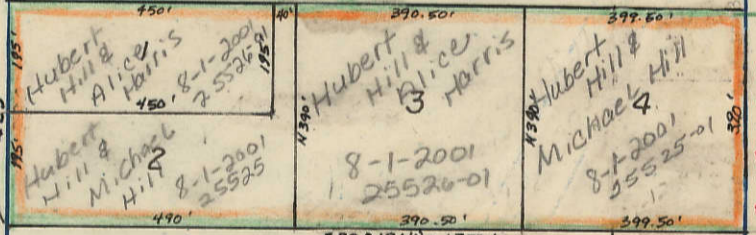 450' 40' 390.50' 399.50'
195' Hubert Hill & Alice Harris 1 8-1-2001 25526-01 195'
450'
195' Hubert Hill & Michael Hill 2 8-1-2001 25525
490'
N 390' Hubert Hill & Alice Harris 3
8-1-2001
25526-01
390.50'
N 390' Hubert Hill & Michael Hill 4 390'
8-1-2001
25525-01
399.50'